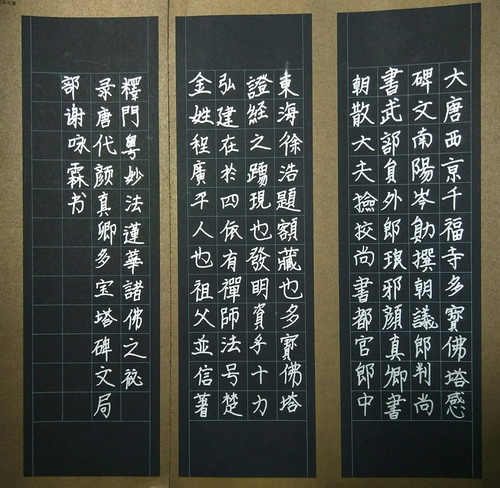 大唐西京千福寺多寶佛塔感
碑文南陽岑勛撰朝議郎判尚
書武部員外郎琅邪顏真卿書
朝散大夫撿挍尚書都官郎中
東海徐浩題額藏也多寶佛塔
證經之踴現也發明資乎十力
弘建在於四依有禪師法号楚
金姓程廣平人也祖父並信著
釋門粤妙法蓮華諸佛之秘
录唐代颜真卿多宝塔碑文局
部谢咏霖书